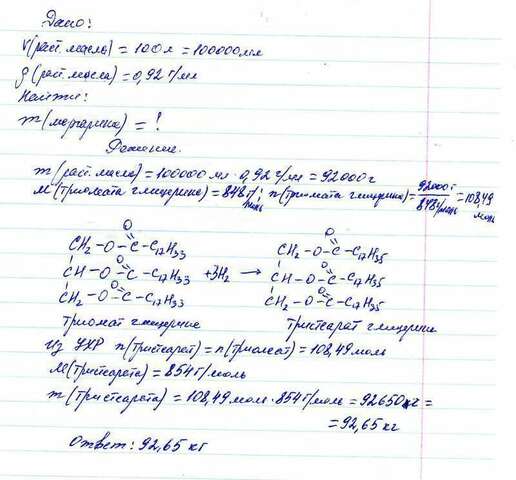 Дано:
V(раст. масла) = 100л = 100000мл
ρ(раст. масла) = 0,92 г/мл
Найти:
m(маргарина) = ?
Решение.
m(раст. масла) = 100000 мл · 0,92 г/мл = 92000г
M(триолеата глицерина) = 848г/моль; n(триолеата глицерина) = 92000г / 848г/моль = 108,49 моль
O O
CH₂ – O – C – C₁₇H₃₃ CH₂ – O – C – C₁₇H₃₅
O O
CH – O – C – C₁₇H₃₃ +3H₂ → CH – O – C – C₁₇H₃₅
O O
CH₂ – O – C – C₁₇H₃₃ CH₂ – O – C – C₁₇H₃₅
триолеат глицерина тристеарат глицерина
Из УХР n(тристеарат) = n(триолеат) = 108,49 моль
M(тристеарата) = 854 г/моль
m(тристеарата) = 108,49 моль · 854 г/моль = 92650 г =
= 92,65 кг
Ответ: 92,65 кг